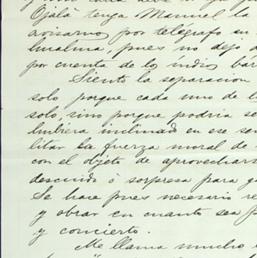 Ojalá tenga Manuel la
avisarnos por telégrafo su
pues no dejo de
por cuenta de los indios bar
Siento la separacion
solo porque cada uno de
solo, sino porque podría se
hubiera inclinado en ese son
litar la fuerza moral de
con el objeto de aprovechars
descuido ó sorpresa para
Se hace pues necesario re
y obrar en cuanto sea po
y concierto.
Me llama mucho